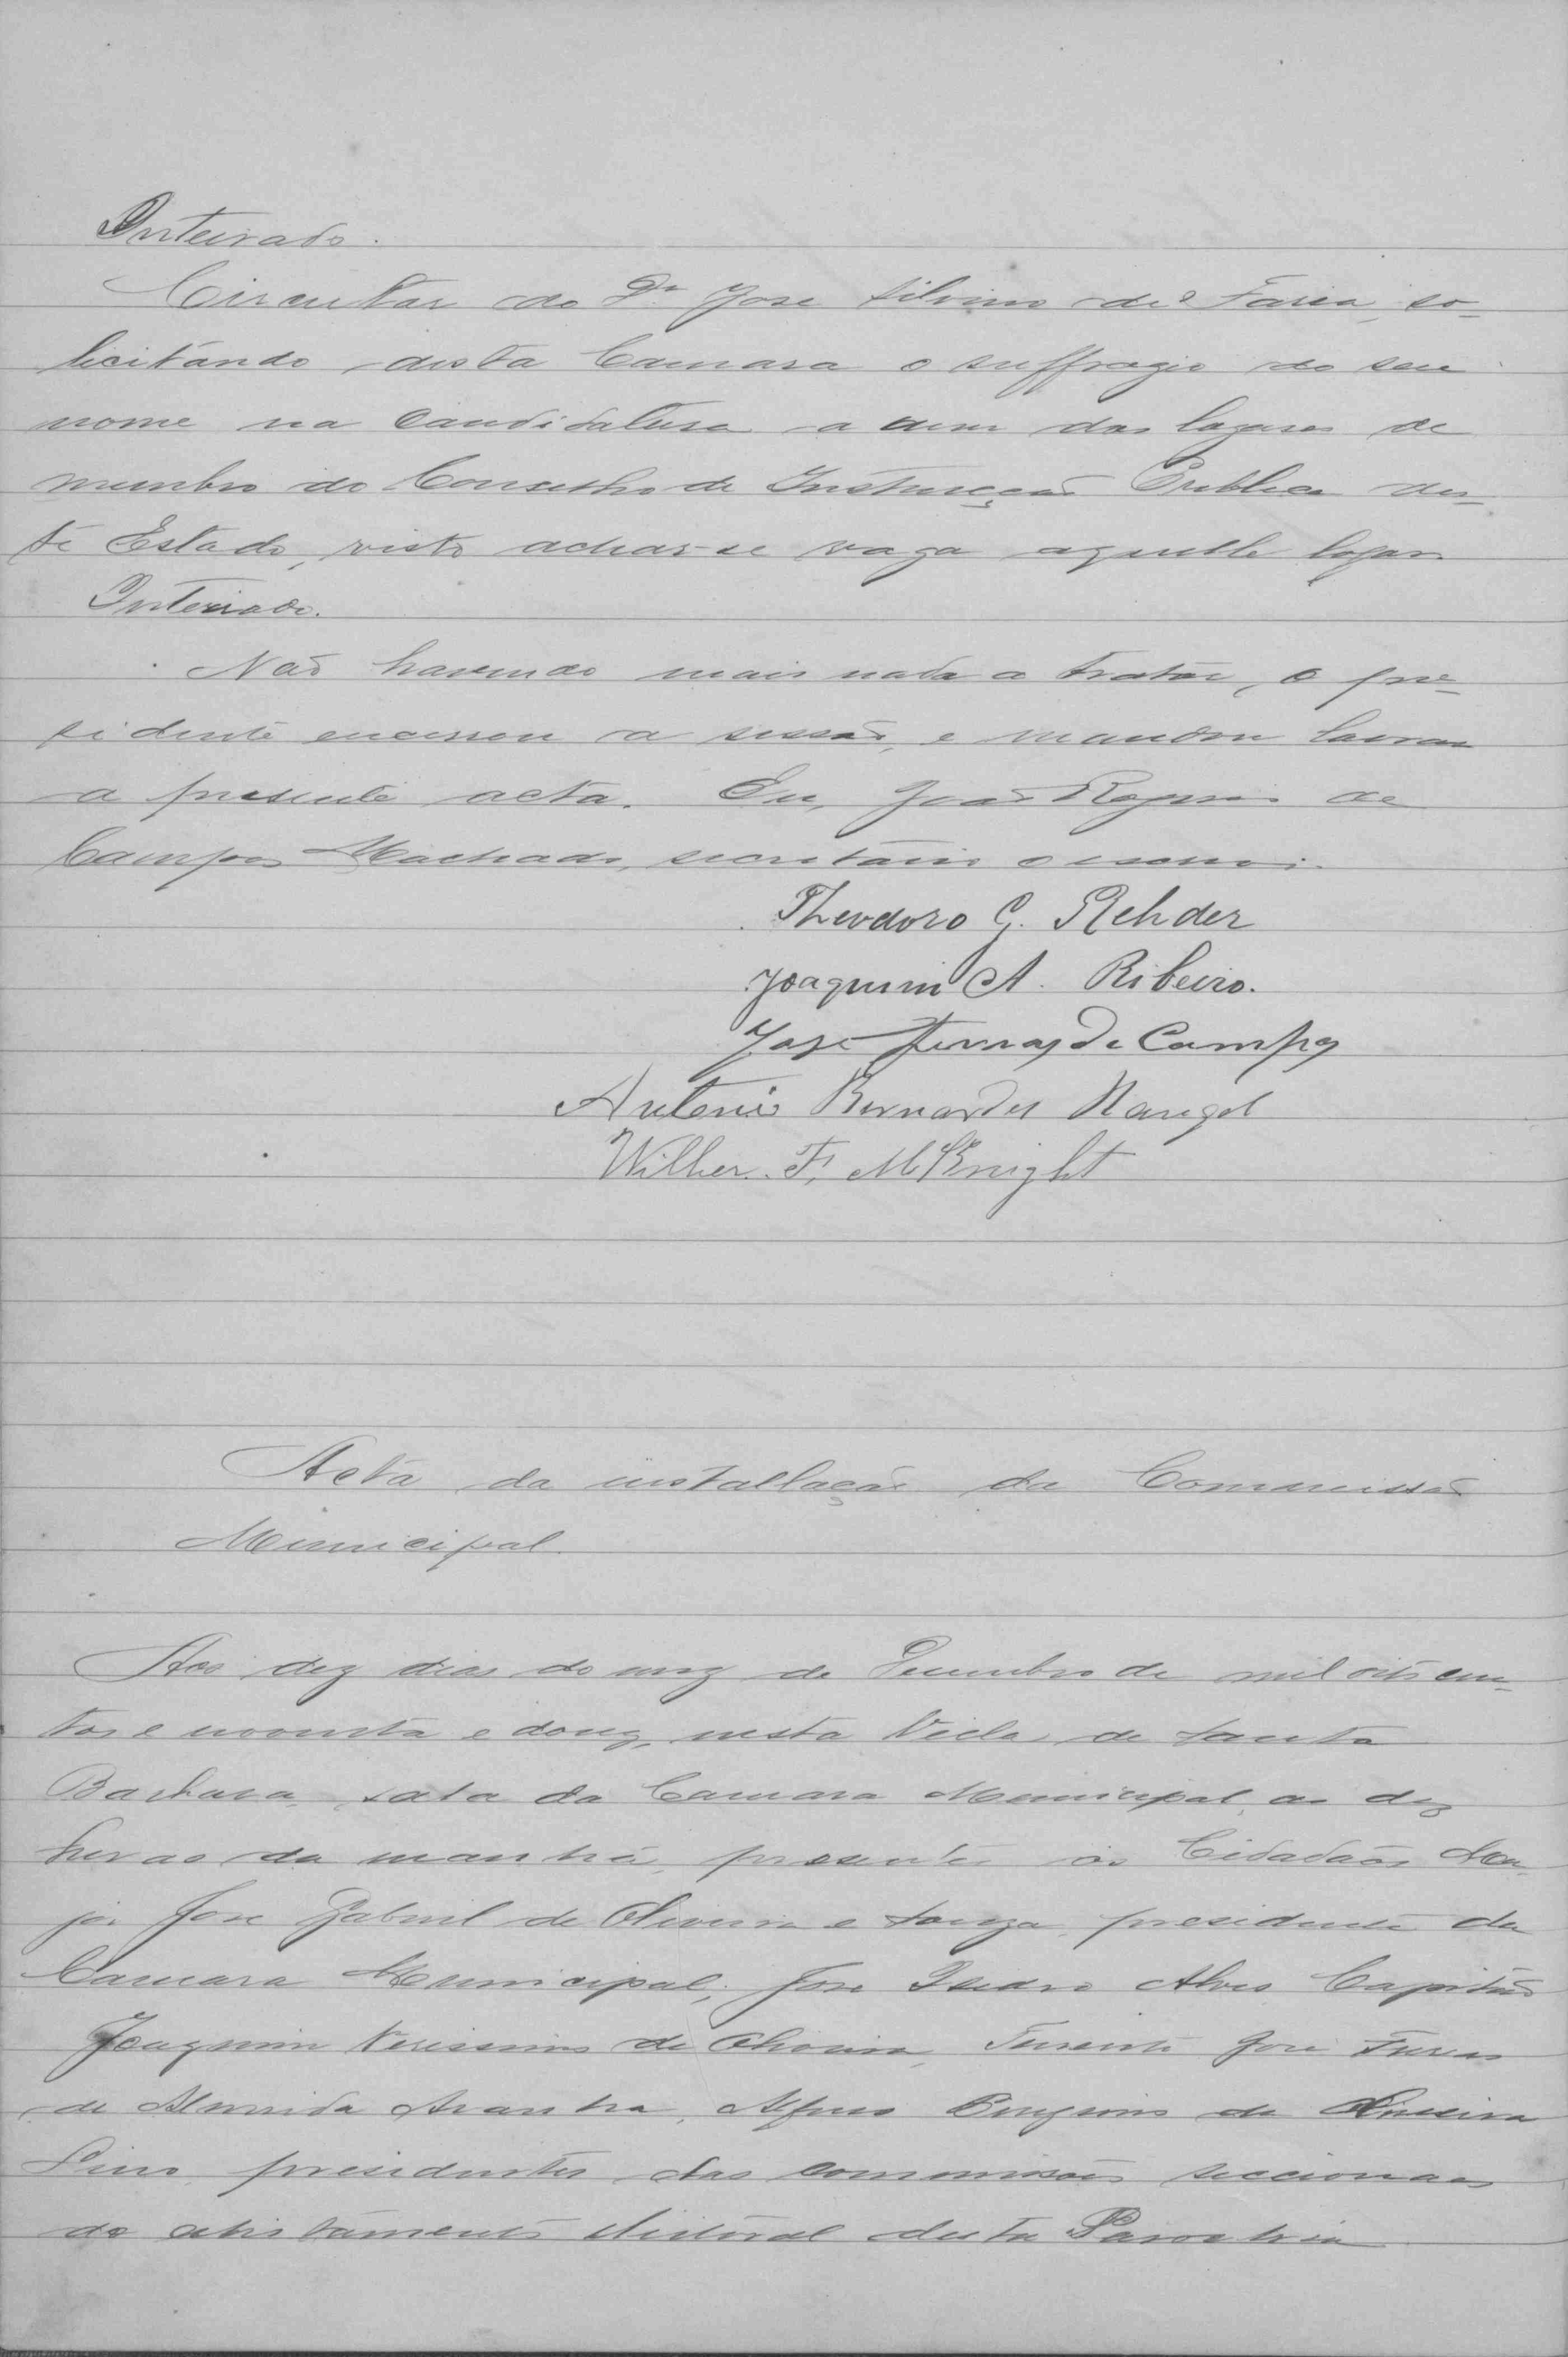 Inteirado.
Circular do Dr José Silvino de Faria, so-
licitando desta Camara o suffragio do seu
nome na candidatura a um dos logares de
membro do Conselho de Instrucção Publica des-
te Estado, visto achar-se vaga aquelle logar.
Inteirado.
Não havendo mais nada a tratar, o pre-
sidente encerrou a sessão, e mandou lavrar
a presente acta. Eu, João de
Campos Machado, secretario o escrevi.
Theodoro G. Rehder
Joaquim A. Ribeiro.
José Ferraz de Campos
Antonio Bernardes Rangel
Wilber. F. McKnight
Acta da installação da Commissão
Municipal.
Aos dez dias do mez de Dezembro de mil oitocen-
tos e noventa e douz, nesta Villa de Santa
Barbara, sala da Camara Municipal, as dez
horas da manhã, presentes os Cidadãos Ma-
jor José Gabriel de Oliveira e Souza, presidente da
Camara Municipal, José Isidro Alves, Capitão
Joaquim Verissimo de Oliveira, Tenente José Ferraz
de Almeida Aranha, de Oliveira
Lino, presidentes das commissões seccionaes
do alistamento eleitoral desta Parochia